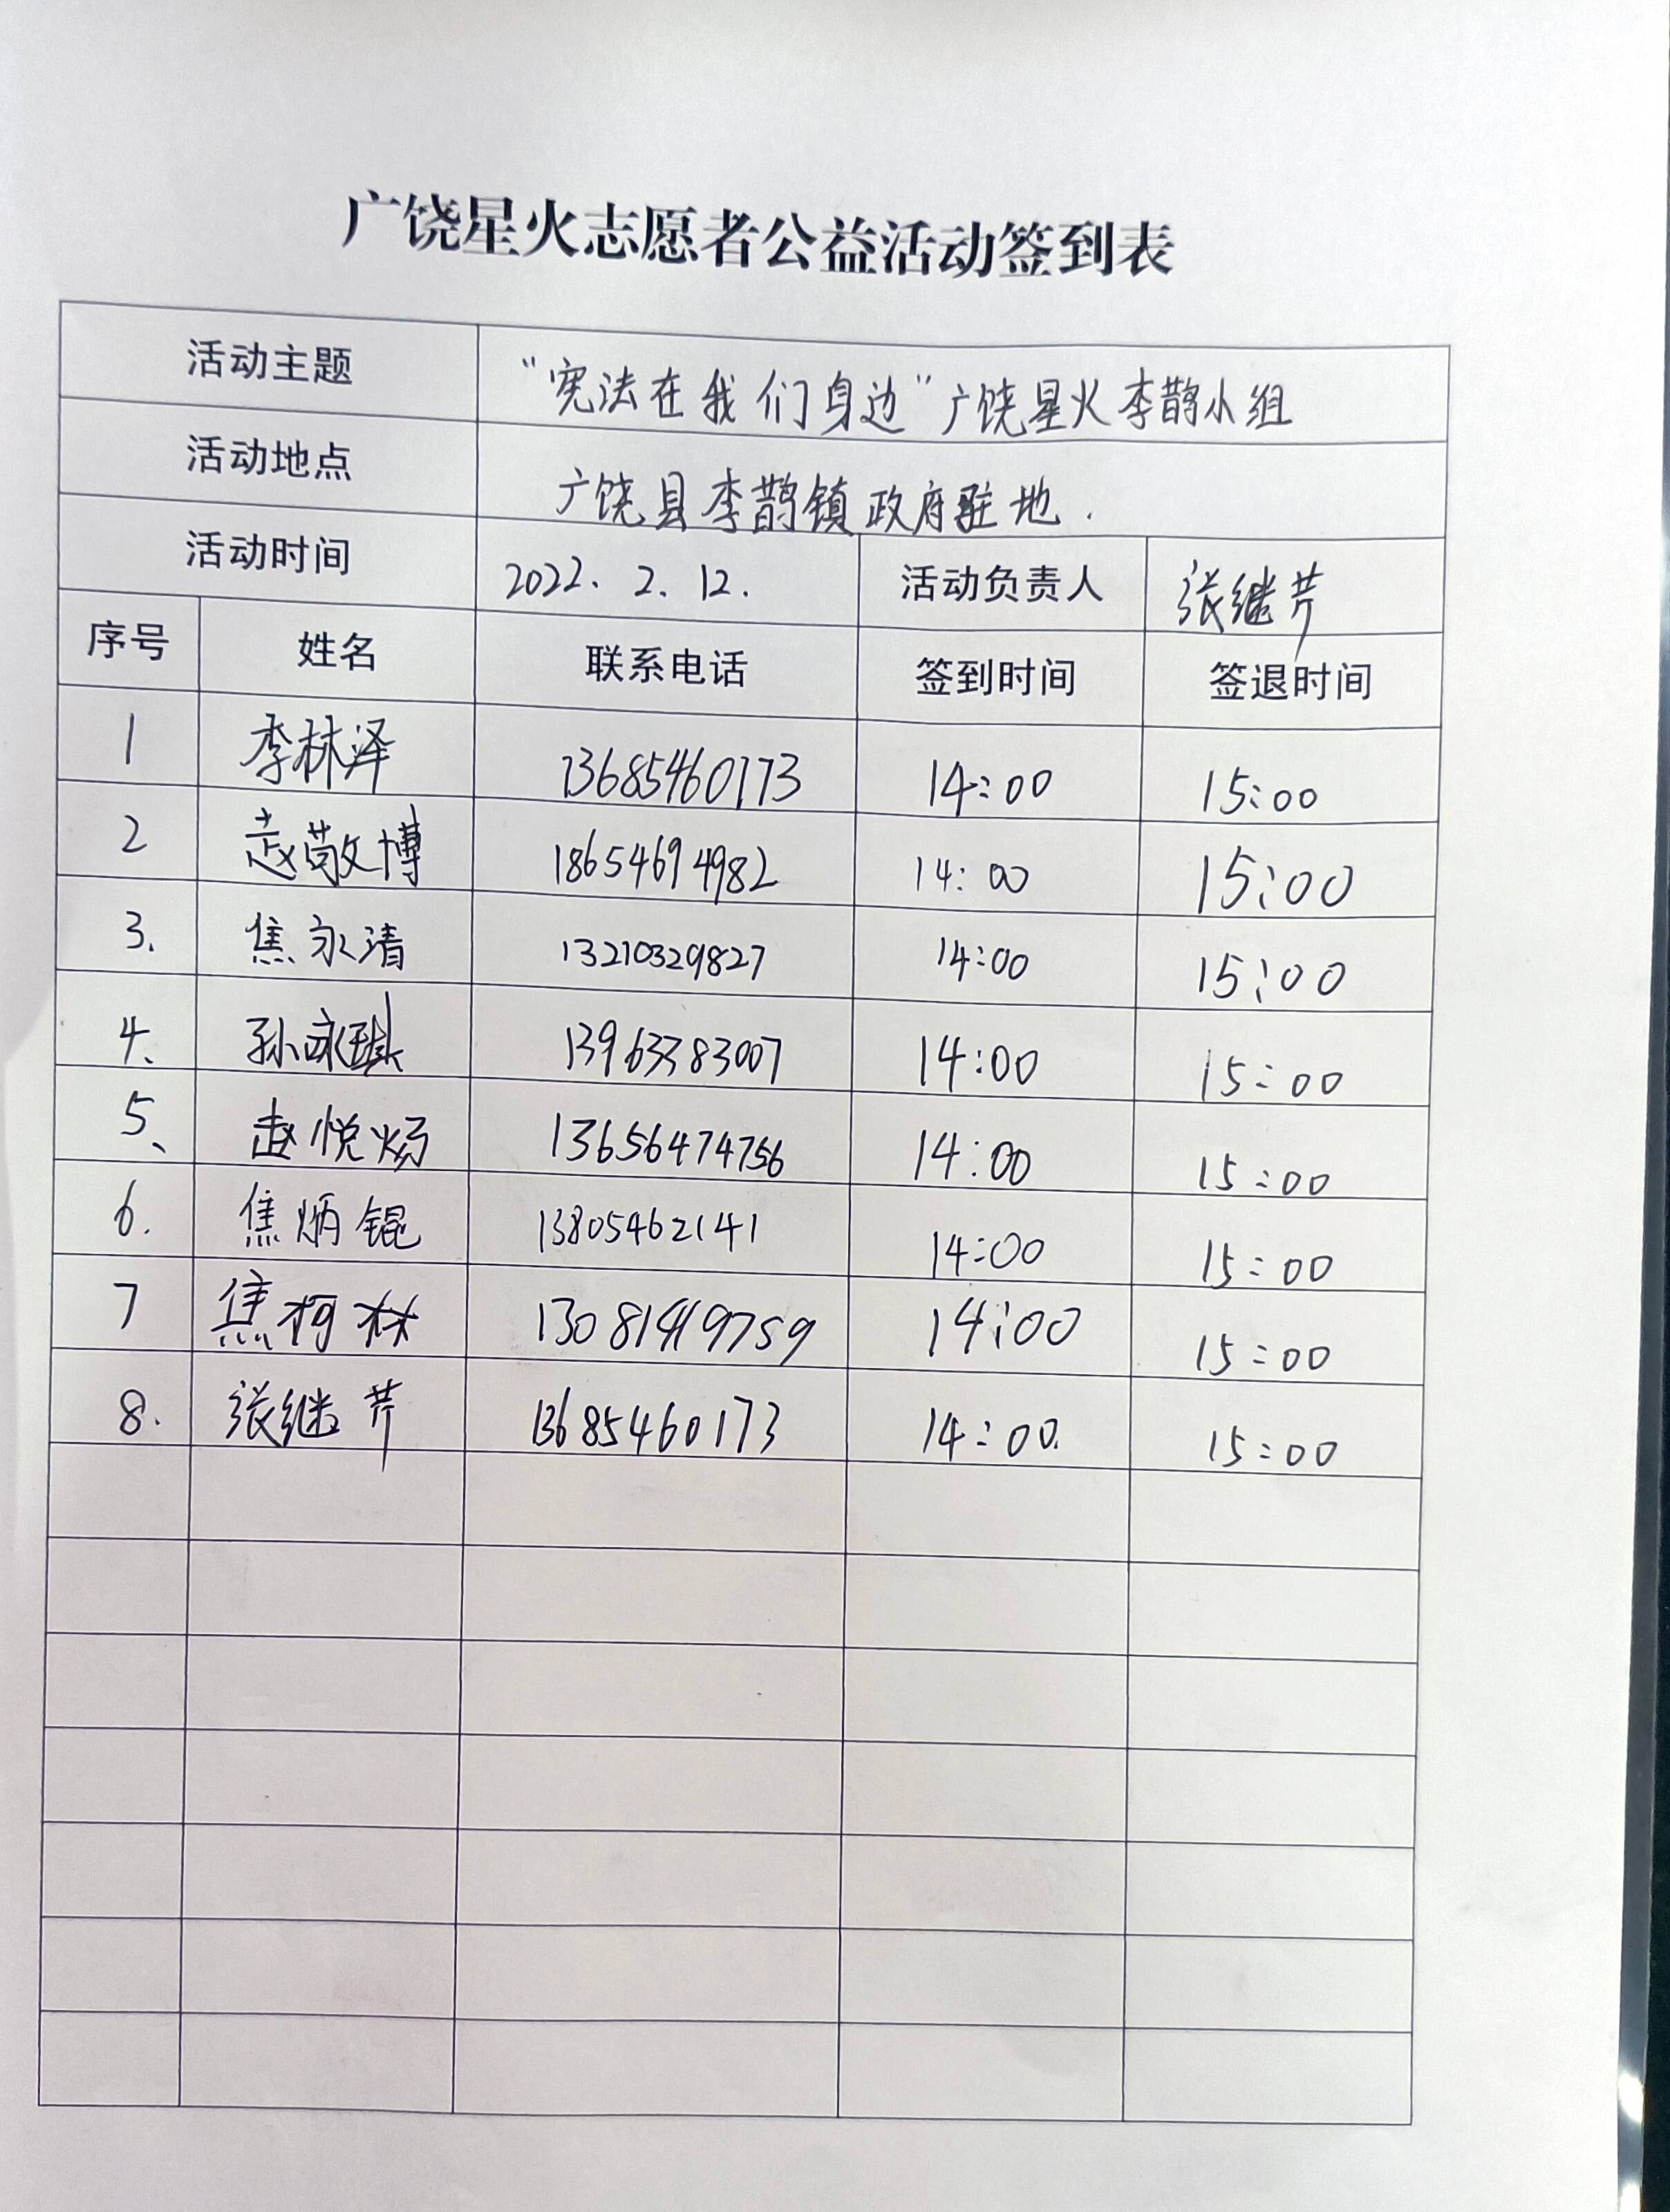 广饶星火志愿者公益活动签到表
活动主题 “宪法在我们身边”广饶星火李鹊小组
活动地点 广饶县李鹊镇政府驻地.
活动时间 2022. 2. 12. 活动负责人 张继芹
序号 姓名 联系电话 签到时间 签退时间
1 李林泽 13685460173 14:00 15:00
2 赵敬博 18654694982 14:00 15:00
3. 焦永清 13210329827 14:00 15:00
4、 孙咏琪 14:00 15:00
5、 赵悦炀 13656474756 14:00 15:00
6. 焦炳锟 13805462141 14:00 15:00
7 焦柯林 14:00 15:00
8. 张继芹 13685460173 14:00. 15:00